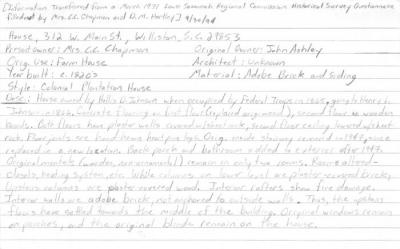 [Information transferred from a March 1971 Lower Savannah Regional Commission Historical Survey Questionnaire
filled out by Mrs. C.C. Chapman and D.M. Hartley] 9/30/94
House, 312 W. Main St., Williston, S.C. 29853
Present owner: Mrs. C.C. Chapman Original Owner: John Ashley
Orig. Use: Farm House Architect: Unknown
Year built: c. 1820s Material: Adobe Brick and Siding
Style: Colonial Plantation House
Desc.: House owned by Hollis D. Johnson when occupied by Federal Troops in 1865, going to Henry L.
Johnson in 1866. Concrete flooring on first floor (replaced original), second floor is wooden
boards. Both floors have plaster walls, second floor ceiling, lowered
Floor joists are hand hewn heart pine logs. Orig. mode stairway removed in 1947, since
replaced in a new location. Back porch and bathroom added to exterior after 1947.
Original mantels (wooden, non-ornamental) remain in only two rooms. Rooms altered -
closets, heating system, etc. While columns on lower level are plaster-covered brick,
upstairs columns are plaster covered wood. Interior rafters show fire damage.
Interior walls are adobe brick, not anchored to outside walls. Thus, the upstairs
floors have settled towards the middle of the building. Original windows remain
on porches, and the original blinds remain on the house.